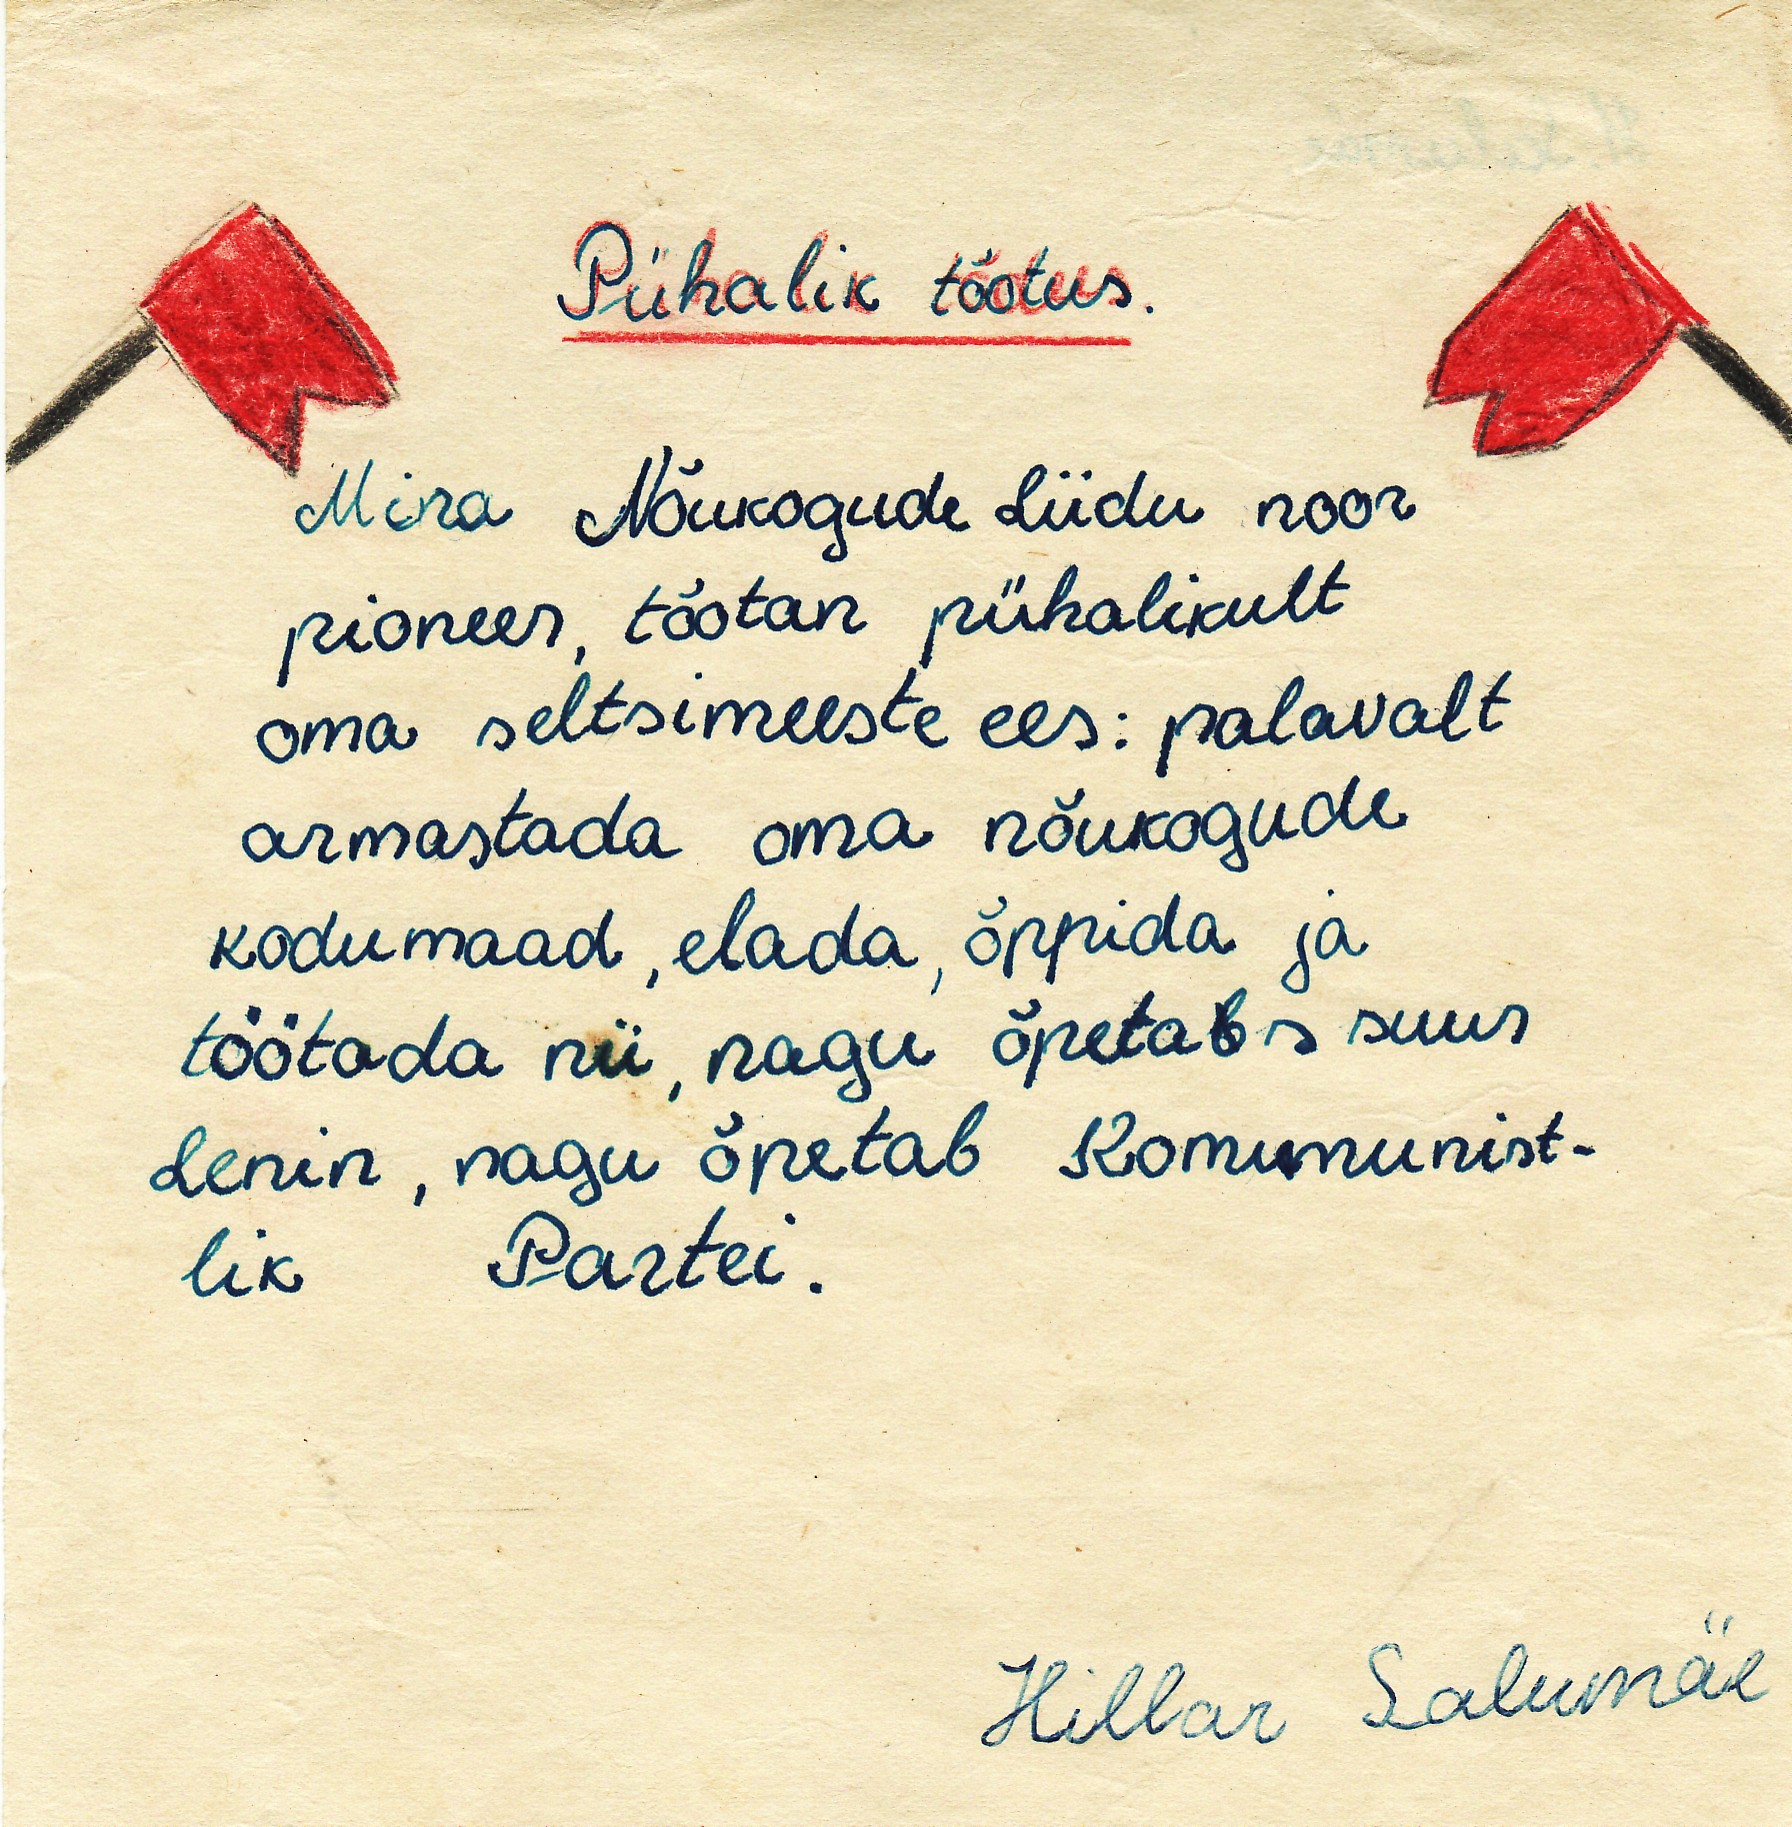 Pühalik tõotus.
Mina Nõukogude Liidu noor
pioneer, tõotan pühalikult
oma seltsimeeste ees: palavalt
armastada oma nõukogude
kodumaad, elada, õppida ja
töötada nii, nagu õpetabs suur
Lenin, nagu õpetab Kommunist-
lik Partei.
Hillar Salumäe